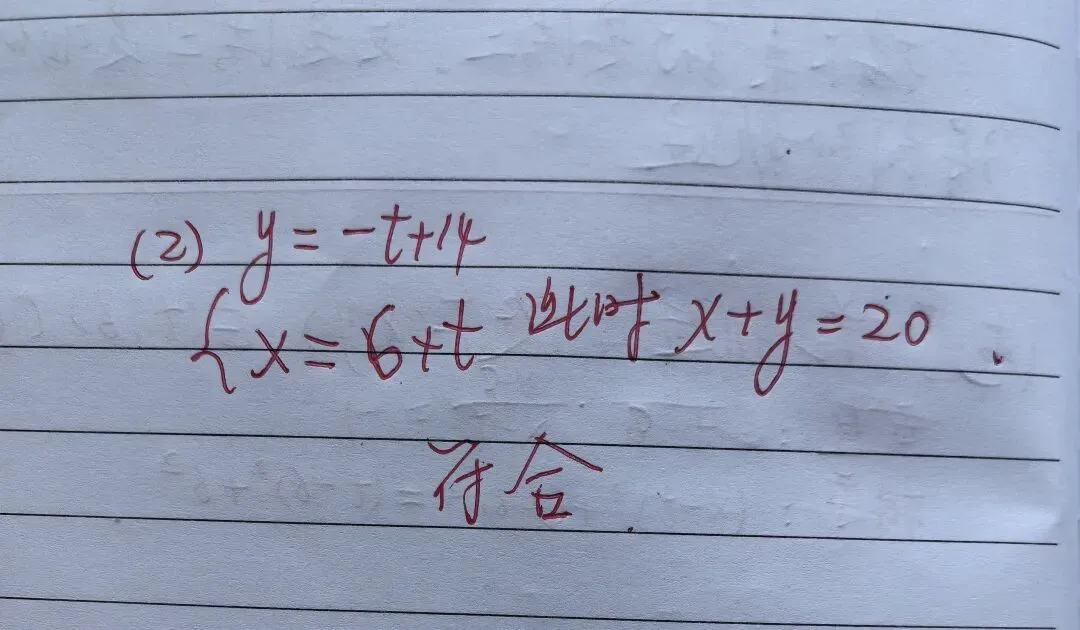 (2) y=-t+14
{x=6+t 此时 x+y=20.
符合